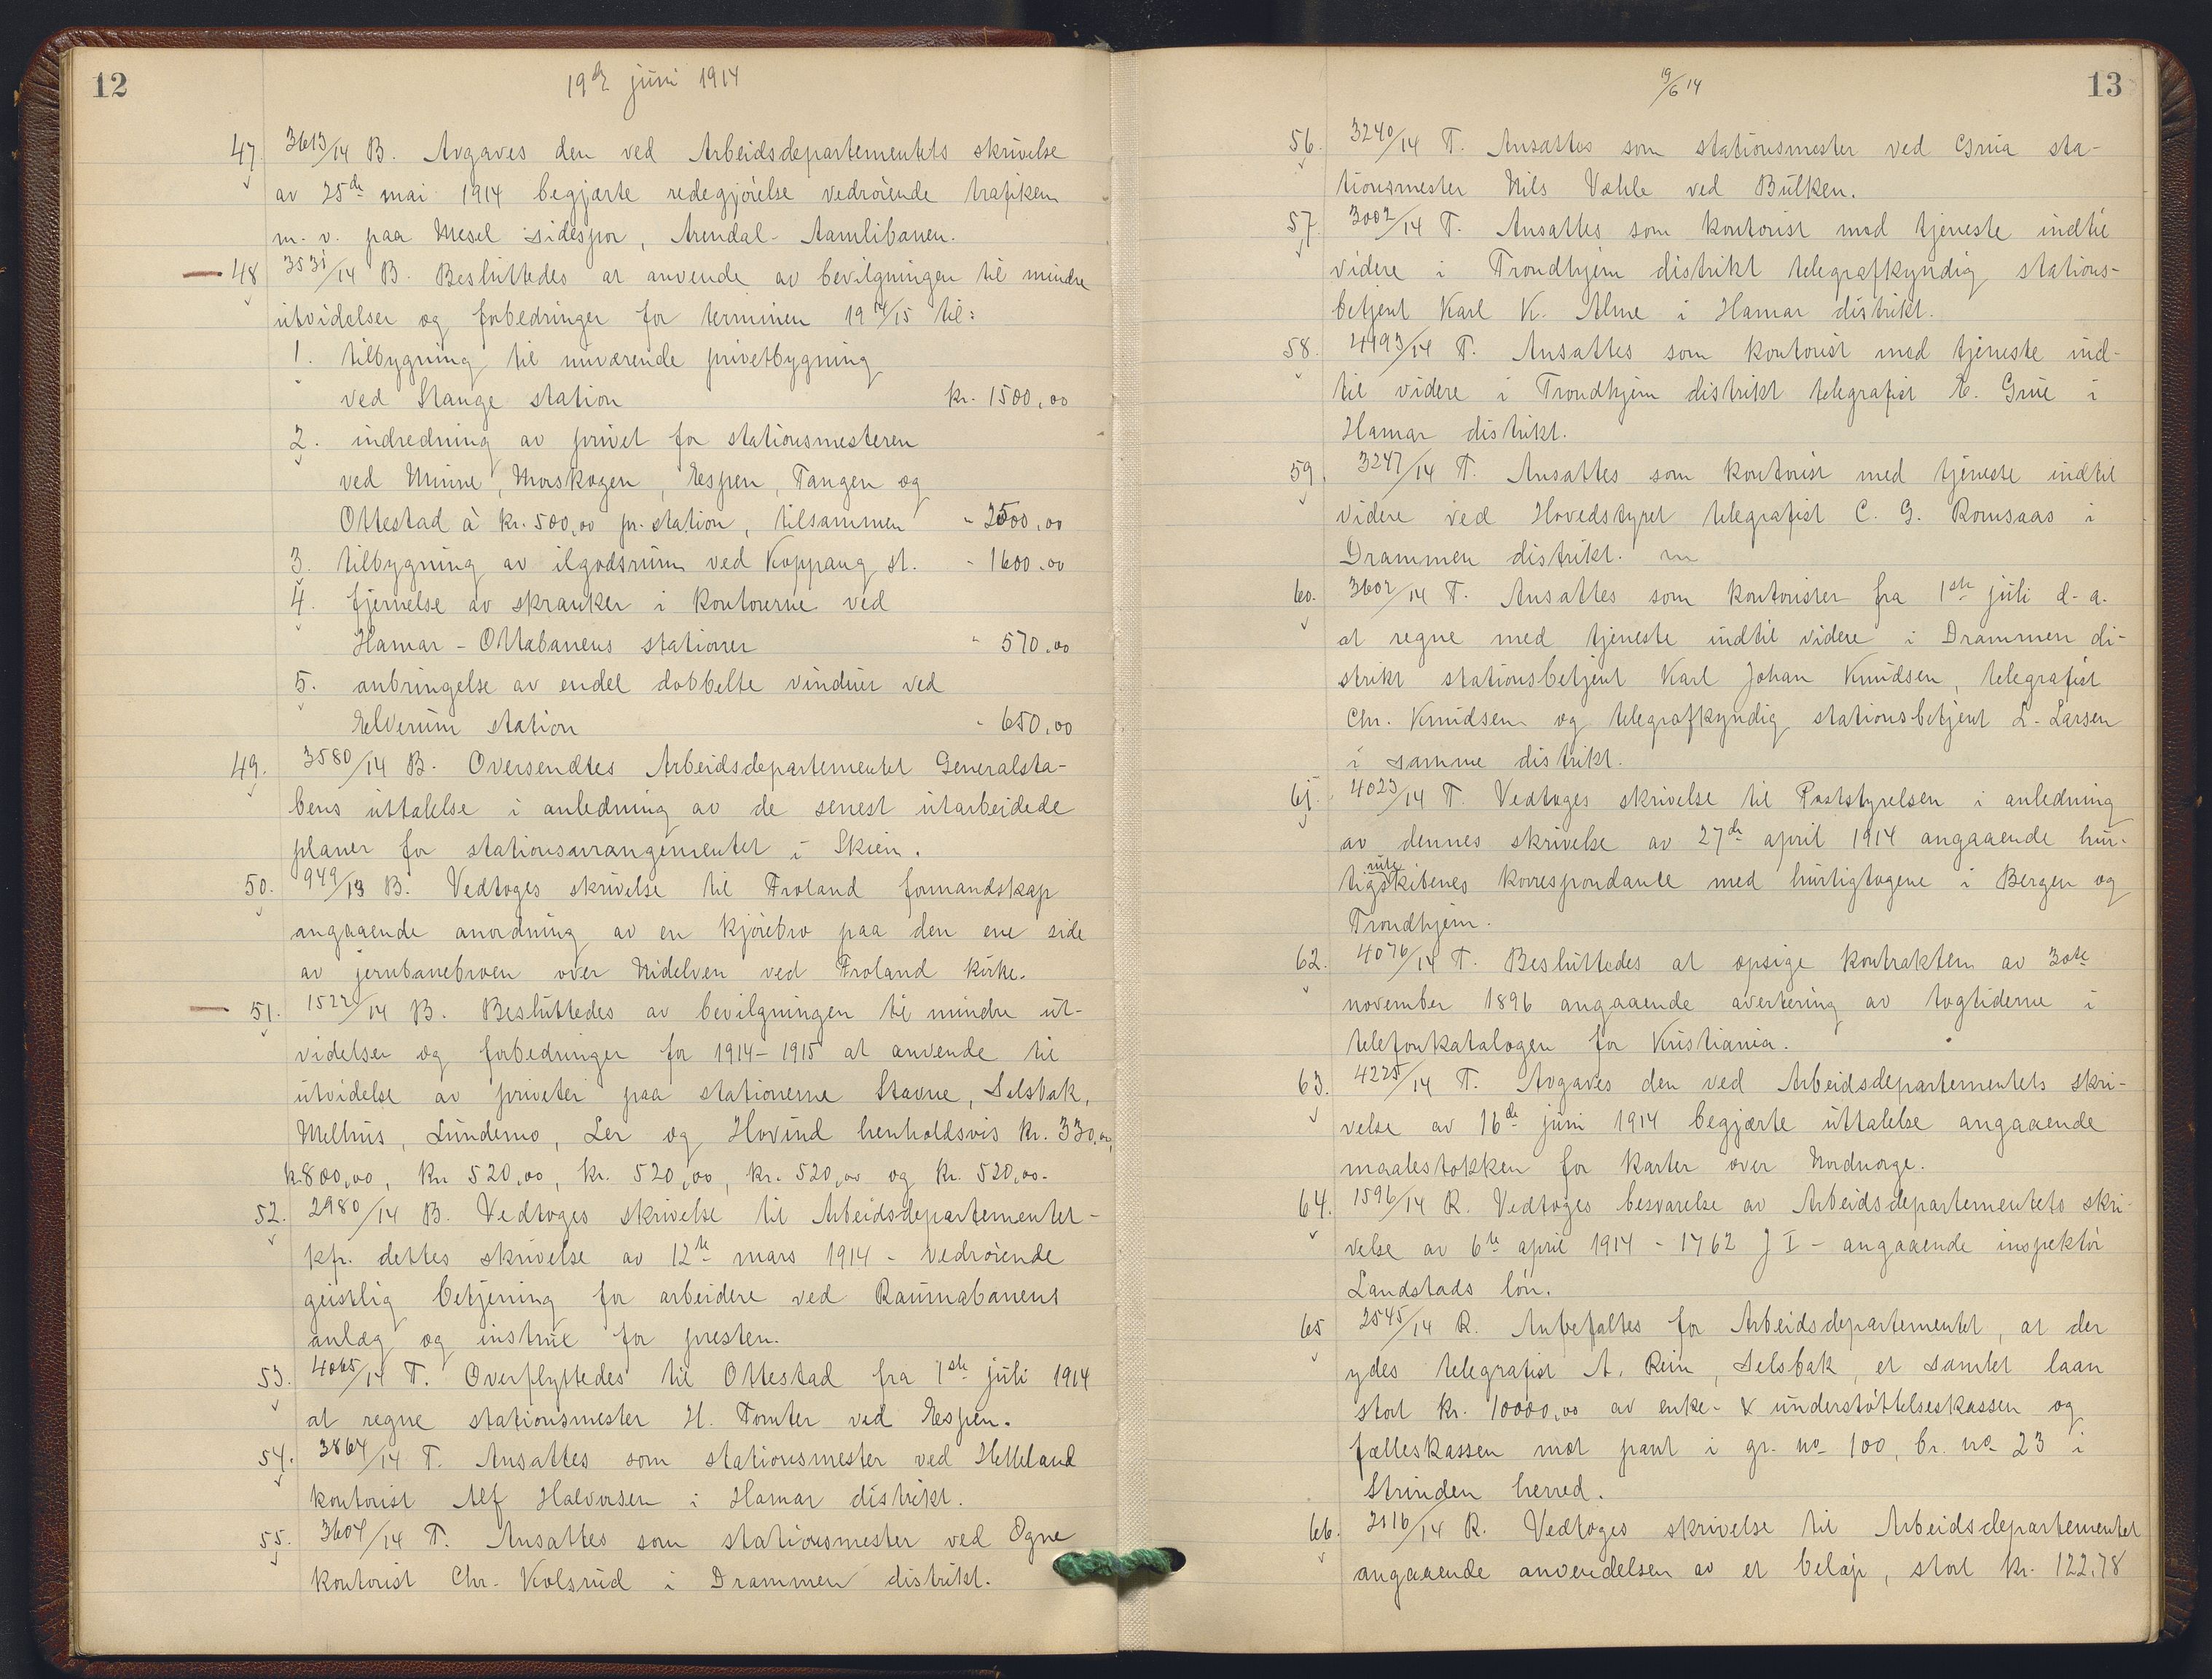 12
19de juni 1914
47. 3613/14 B. Avgaves den ved Arbeidsdepartementets skrivelse
av 25de mai 1914 begjærte redegjørelse vedrørende trafiken
m. v. paa Mesel sidespor, Arendal-Aamlibanen.
48 3531/14 B. Besluttedes at anvende av bevilgningen til mindre
utvidelser og forbedringer for terminen 1914/15 til:
1. tilbygning til nuværende privetbygning
ved Stange station kr. 1500,00
2. indredning av privet for stationsmesteren
ved Minne, Morskogen, Espen, Tangen og
Ottestad à kr. 500,00 pr. station, tilsammen - 2500,00
3. tilbygning av ilgodsrum ved Koppang st. - 1600.00
4. fjernelse av skranker i kontorerne ved
Hamar-Ottabanens stationer - 570.00
5. anbringelse av endel dobbelte vinduer ved
Elverum station - 650,00
49. 3580/14 B. Oversendtes Arbeidsdepartementet Generalsta-
bens uttalelse i anledning av de senest utarbeidede
planer for stationsarrangementet i Skien.
50. 949/13 B. Vedtoges skrivelse til Froland formandskap
angaaende anordning av en kjørebro paa den ene side
av jernbanebroen over Nidelven ved Froland kirke.
51. 1522/14 B. Besluttedes av bevilgningen til mindre ut-
videlser og forbedringer for 1914-1915 at anvende til
utvidelse av priveter paa stationerne Stavne, Selsbak,
Melhus, Lundemo, Ler og Hovind henholdsvis kr. 330,00,
kr. 800,00, kr. 520,00, kr. 520,00, kr. 520,00 og kr. 520,00.
52. 2980/14 B. Vedtoges skrivelse til Arbeidsdepartementet -
kfr. dettes skrivelse av 12te mars 1914 - vedrørende
geistlig betjening for arbeidere ved Raumabanens
anlæg og instrux for presten.
53. 4065/14 T. Overflyttedes til Ottestad fra 1ste juli 1914
at regne stationsmester H. Tomter ved Espen.
54. 3864/14 T. Ansattes som stationsmester ved Helleland
kontorist Alf Halvorsen i Hamar distrikt.
55. 3604/14 T. Ansattes som stationsmester ved Ogne
kontorist Chr. Kolsrud i Drammen distrikt.
19/6 14
13
56. 3240/14 T. Ansattes som stationsmester ved Grua sta-
tionsmester Nils Væhle ved Bulken.
57. 3002/14 T. Ansattes som kontorist med tjeneste indtil
videre i Trondhjem distrikt telegrafkyndig stations-
betjent Karl K. Alme i Hamar distrikt.
58. 4193/14 T. Ansattes som kontorist med tjeneste ind-
til videre i Trondhjem distrikt telegrafist E. Grue i
Hamar distrikt.
59. 3247/14 T. Ansattes som kontorist med tjeneste indtil
videre ved Hovedstyret telegrafist C. G. Romsaas i
Drammen distrikt.
60. 3602/14 T. Ansattes som kontorister fra 1ste juli d.a.
at regne med tjeneste indtil videre i Drammen di-
strikt stationsbetjent Karl Johan Knudsen, telegrafist
Chr. Knudsen og telegrafkyndig stationsbetjent L. Larsen
i samme distrikt.
61. 4023/14 T. Vedtoges skrivelse til Poststyrelsen i anledning
av dennes skrivelse av 27de april 1914 angaaende hur-
tigruteskibenes korrespondanse med hurtigtogene i Bergen og
Trondhjem.
62. 4076/14 T. Besluttedes at opsige kontrakten av 30te
november 1896 angaaende avertering av togtiderne i
telefonkatalogen for Kristiania.
63. 4225/14 T. Avgaves den ved Arbeidsdepartementets skri-
velse av 16de juni 1914 begjærte uttalelse angaaende
maalestokken for karter over Nordnorge.
64. 1596/14 R. Vedtoges besvarelse av Arbeidsdepartementets skri-
velse av 6te april 1914 - 1762 J I - angaaende inspektør
Landstads løn.
65 2545/14 R. Anbefaltes for Arbeidsdepartementet, at der
ydes telegrafist A. Rein, Selsbak, et samlet laan
stort kr. 10000,00 av enke- & understøttelseskassen og
fælleskassen mot pant i gr. no 100, br. no 23 i
Strinden herred.
66. 2116/14 R. Vedtoges skrivelse til Arbeidsdepartementet
angaaende anvendelsen av et beløp, stort kr. 122.78